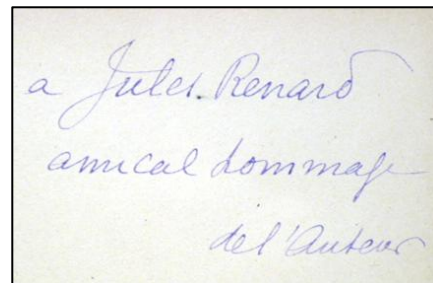 a Jules Renard
amical hommage
de l'Auteur